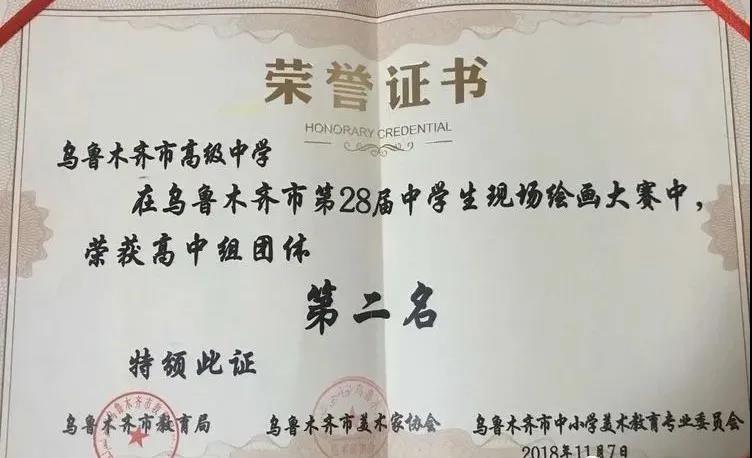 荣誉证书
HONORARY CREDENTIAL
乌鲁木齐市高级中学
在乌鲁木齐市第28届中学生现场绘画大赛中，
荣获高中组团体
第二名
特颁此证
乌鲁木齐市教育局 乌鲁木齐市美术家协会 乌鲁木齐市中小学美术教育专业委员会
2018年11月7日